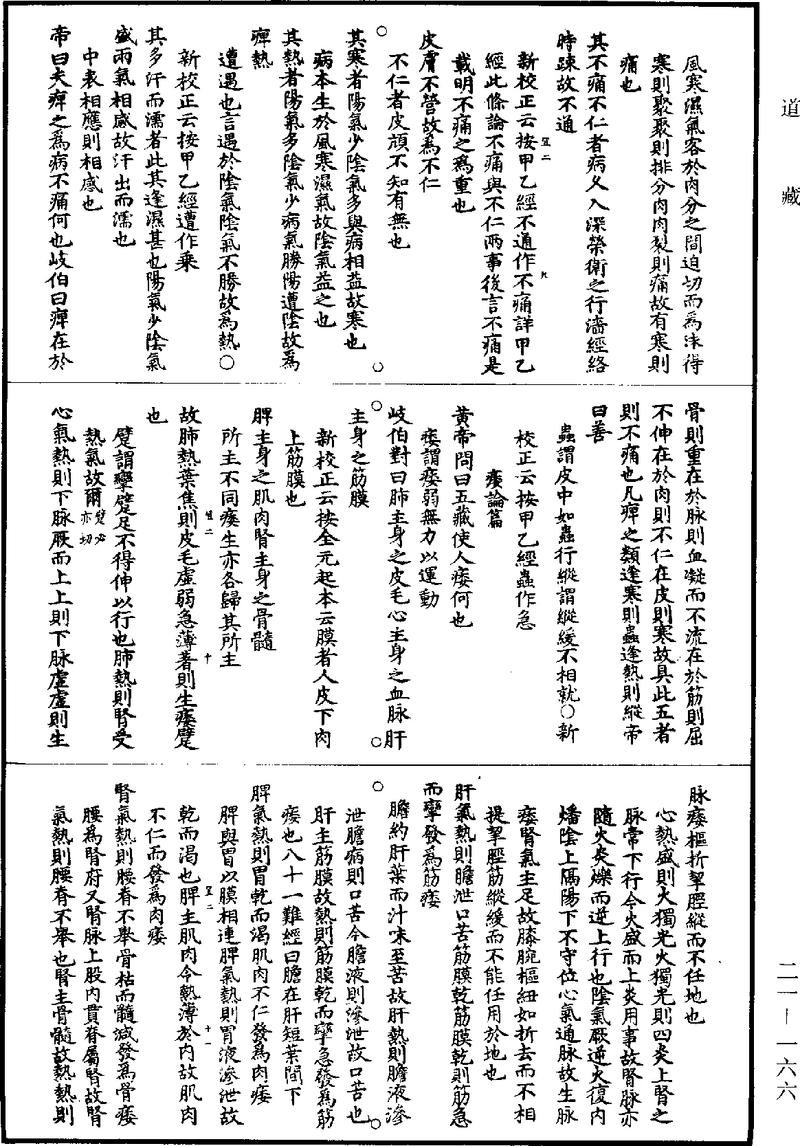 道藏
風寒濕氣客於肉分之間迫切而為沫得
寒則聚聚則排分肉肉裂則痛故有寒則
痛也
其不痛不仁者病久入深榮衛之行濇經絡
時疎故不通
新校正云按甲乙經不通作不痛詳甲乙
經此條論不痛與不仁兩事後言不痛是
載明不痛之為重也
皮膚不營故為不仁
不仁者皮頑不知有無也
其寒者陽氣少陰氣多與病相益故寒也
病本生於風寒濕氣故陰氣益之也
其熱者陽氣多陰氣少病氣勝陽遭陰故為
痺熱
遭遇也言遇於陰氣陰氣不勝故為熱○
新校正云按甲乙經遭作乘
其多汗而濡者此其逢濕甚也陽氣少陰氣
盛兩氣相感故汗出而濡也
中表相應則相感也
帝曰夫痺之為病不痛何也岐伯曰痺在於
骨則重在於脉則血凝而不流在於筋則屈
不伸在於肉則不仁在皮則寒故具此五者
則不痛也凡痺之類逢寒則蟲逢熱則縱帝
曰善
蟲謂皮中如蟲行縱謂縱緩不相就○新
校正云按甲乙經蟲作急
痿論篇
黃帝問曰五藏使人痿何也
痿謂痿弱無力以運動
岐伯對曰肺主身之皮毛心主身之血脉肝
主身之筋膜
新校正云按全元起本云膜者人皮下肉
上筋膜也
脾主身之肌肉腎主身之骨髓
所主不同痿生亦各歸其所主
故肺熱葉焦則皮毛虛弱急薄著則生痿躄
也
躄謂攣躄足不得伸以行也肺熱則腎受
熱氣故爾躄必亦切
心氣熱則下脉厥而上上則下脉虛虛則生
脉痿樞折挈脛縱而不任地也
心熱盛則火獨光火獨光則四炎上腎之
脉常下行今火盛而上炎用事故腎脉亦
隨火炎爍而逆上行也陰氣厥逆火復內
燔陰上隔陽下不守位心氣通脉故生脉
痿腎氣主足故膝腕樞紐如折去而不相
提挈脛筋縱緩而不能任用於地也
肝氣熱則膽泄口苦筋膜乾筋膜乾則筋急
而攣發為筋痿
膽約肝葉而汁味至苦故肝熱則膽液滲
泄膽病則口苦今膽液則滲泄故口苦也
肝主筋膜故熱則筋膜乾而攣急發為筋
痿也八十一難經曰膽在肝短葉間下
脾氣熱則胃乾而渴肌肉不仁發為肉痿
脾與胃以膜相連脾氣熱則胃液滲泄故
乾而渴也脾主肌肉今熱薄於內故肌肉
不仁而發為肉痿
腎氣熱則腰脊不舉骨枯而髓減發為骨痿
腰為腎府又腎脉上股內貫脊屬腎故腎
氣熱則腰脊不舉也腎主骨髓故熱熱則
二一—一六六